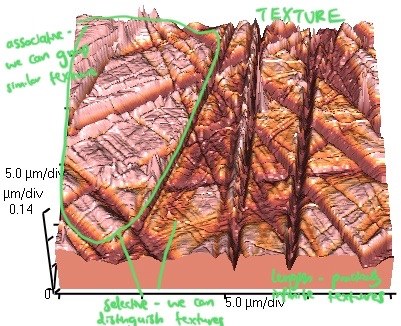 TEXTURE
associative -
we can group
similar texture
5.0 µm/div
µm/div
0.14
0
5.0 µm/div
selective - we can
distinguish textures
length -
textures